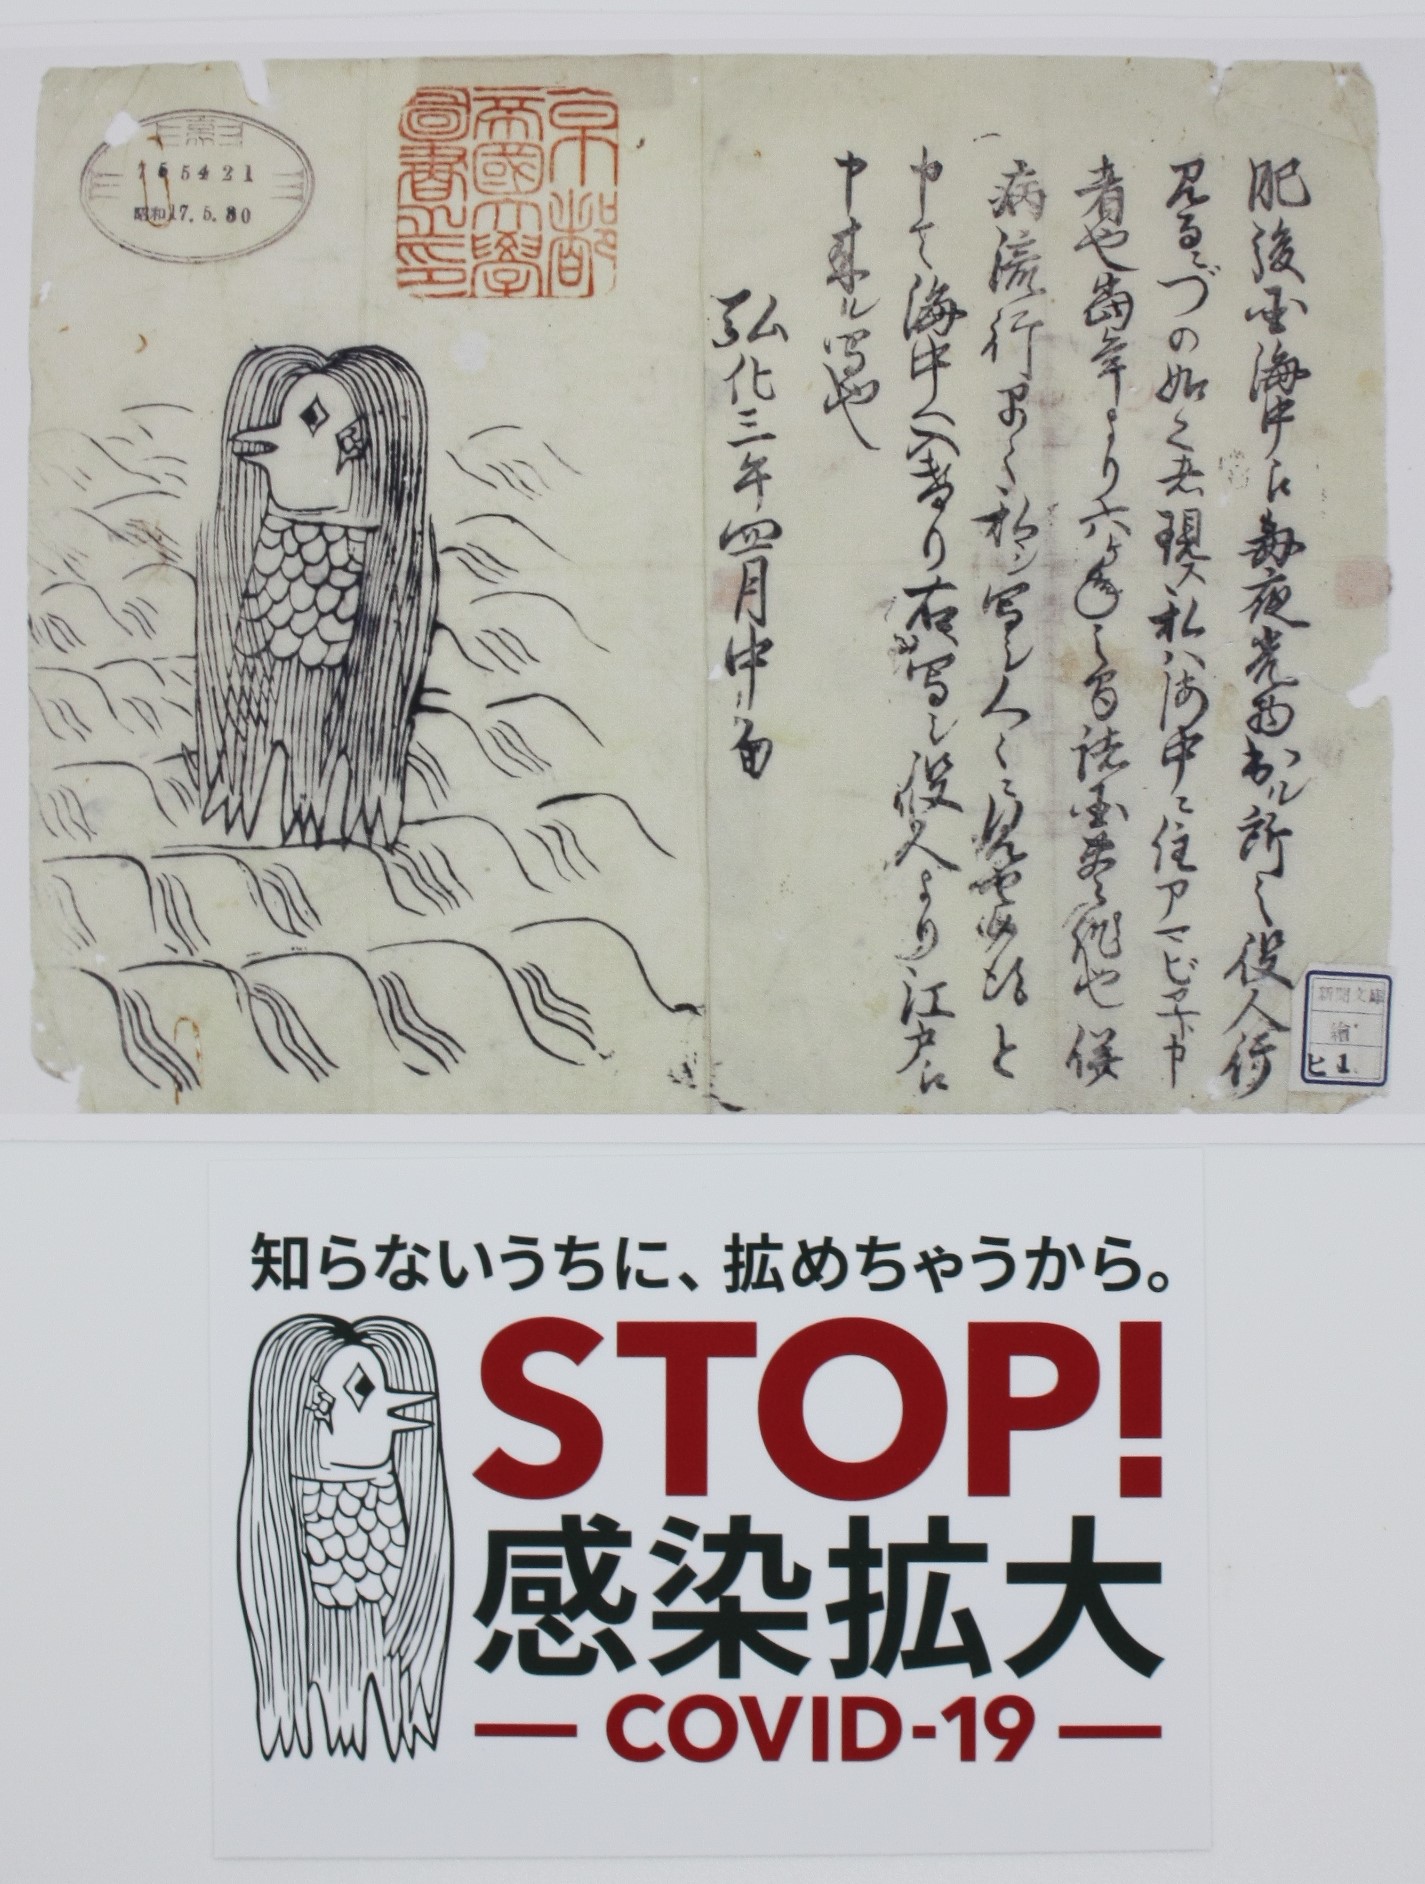 肥後国海中江毎夜光物出ル所之役人行
見るニづの如く者現ス私ハ海中ニ住アマビヱト申
者也当年より六ヶ年之間諸国豊作也併
病流行早々私ヲ写シ人々ニ見セ候得と
申て海中へ入けり右写シ役人より江戸江
申来ル写也
弘化三年四月中旬
京都
帝國大學
圖書之印
155421
昭和17.5.30
新聞文庫
繪
ヒ 1.
知らないうちに、拡めちゃうから。
STOP!
感染拡大
COVID-19